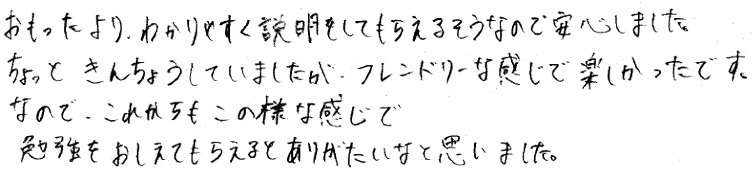 おもったより、わかりやすく説明をしてもらえるそうなので安心しました。
ちょっと きんちょうしていましたが、フレンドリーな感じで楽しかったです。
なので、これからも この様な感じで
勉強を おしえてもらえると ありがたいなと思いました。